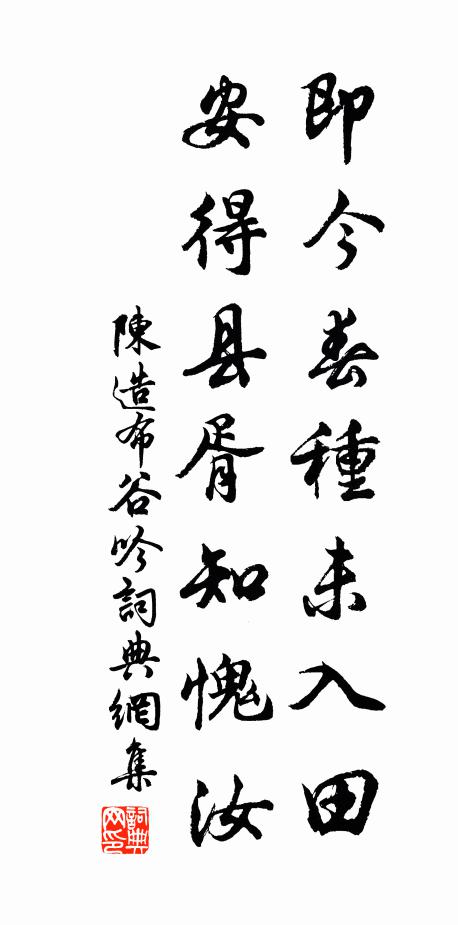 即今春種未入田
安得县胥知愧汝
陳造布谷吟詞典網集
詞典網印